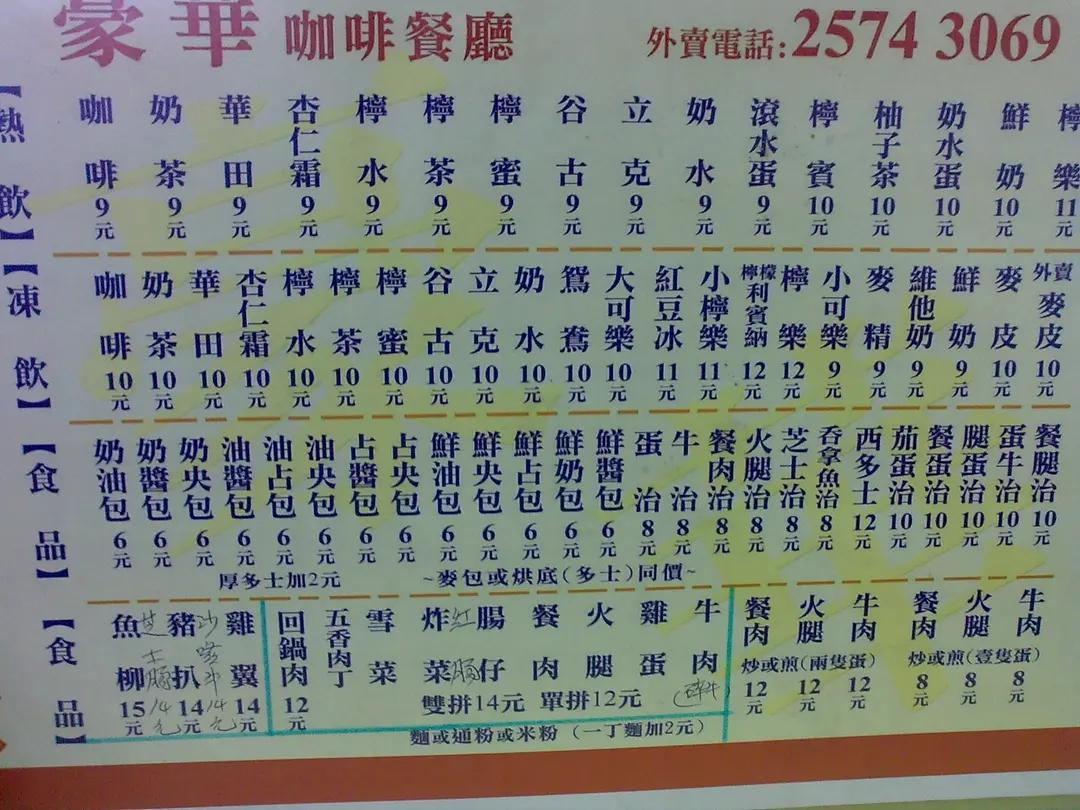 豪華 咖啡餐廳 外賣電話:2574 3069
【熱飲】
咖啡 9元
奶茶 9元
華田 9元
杏仁霜 9元
檸水 9元
檸茶 9元
檸蜜 9元
谷古 9元
立克 9元
奶水 9元
滾水蛋 9元
檸賓 10元
柚子茶 10元
奶水蛋 10元
鮮奶 10元
檸樂 11元
【凍飲】
咖啡 10元
奶茶 10元
華田 10元
杏仁霜 10元
檸水 10元
檸茶 10元
檸蜜 10元
谷古 10元
立克 10元
奶水 10元
鴛鴦 10元
大可樂 10元
紅豆冰 11元
小檸樂 11元
檸檬利賓納 12元
檸樂 12元
小可樂 9元
麥精 9元
維他奶 9元
鮮奶 9元
麥皮 10元
外賣麥皮 10元
【食品】
奶油包 6元
奶醬包 6元
奶央包 6元
油醬包 6元
油占包 6元
油央包 6元
占醬包 6元
占央包 6元
鮮油包 6元
鮮央包 6元
鮮占包 6元
鮮奶包 6元
鮮醬包 6元
蛋治 8元
牛治 8元
餐肉治 8元
火腿治 8元
芝士治 8元
吞拿魚治 8元
西多士 12元
茄蛋治 10元
餐蛋治 10元
腿蛋治 10元
蛋牛治 10元
餐腿治 10元
厚多士加2元 ~麥包或烘底(多士)同價~
【食品】
魚柳 15元
芝士腸 14元
豬扒 14元
沙嗲牛 14元
雞翼 14元
回鍋肉 12元
五香肉丁
雪菜
炸菜
紅腸
腸仔
餐肉
火腿
雞蛋
牛肉
雙拼14元 單拼12元
麵或通粉或米粉 (一丁麵加2元)
餐肉 火腿 牛肉
炒或煎(兩隻蛋)
12元 12元 12元
餐肉 火腿 牛肉
炒或煎(壹隻蛋)
8元 8元 8元